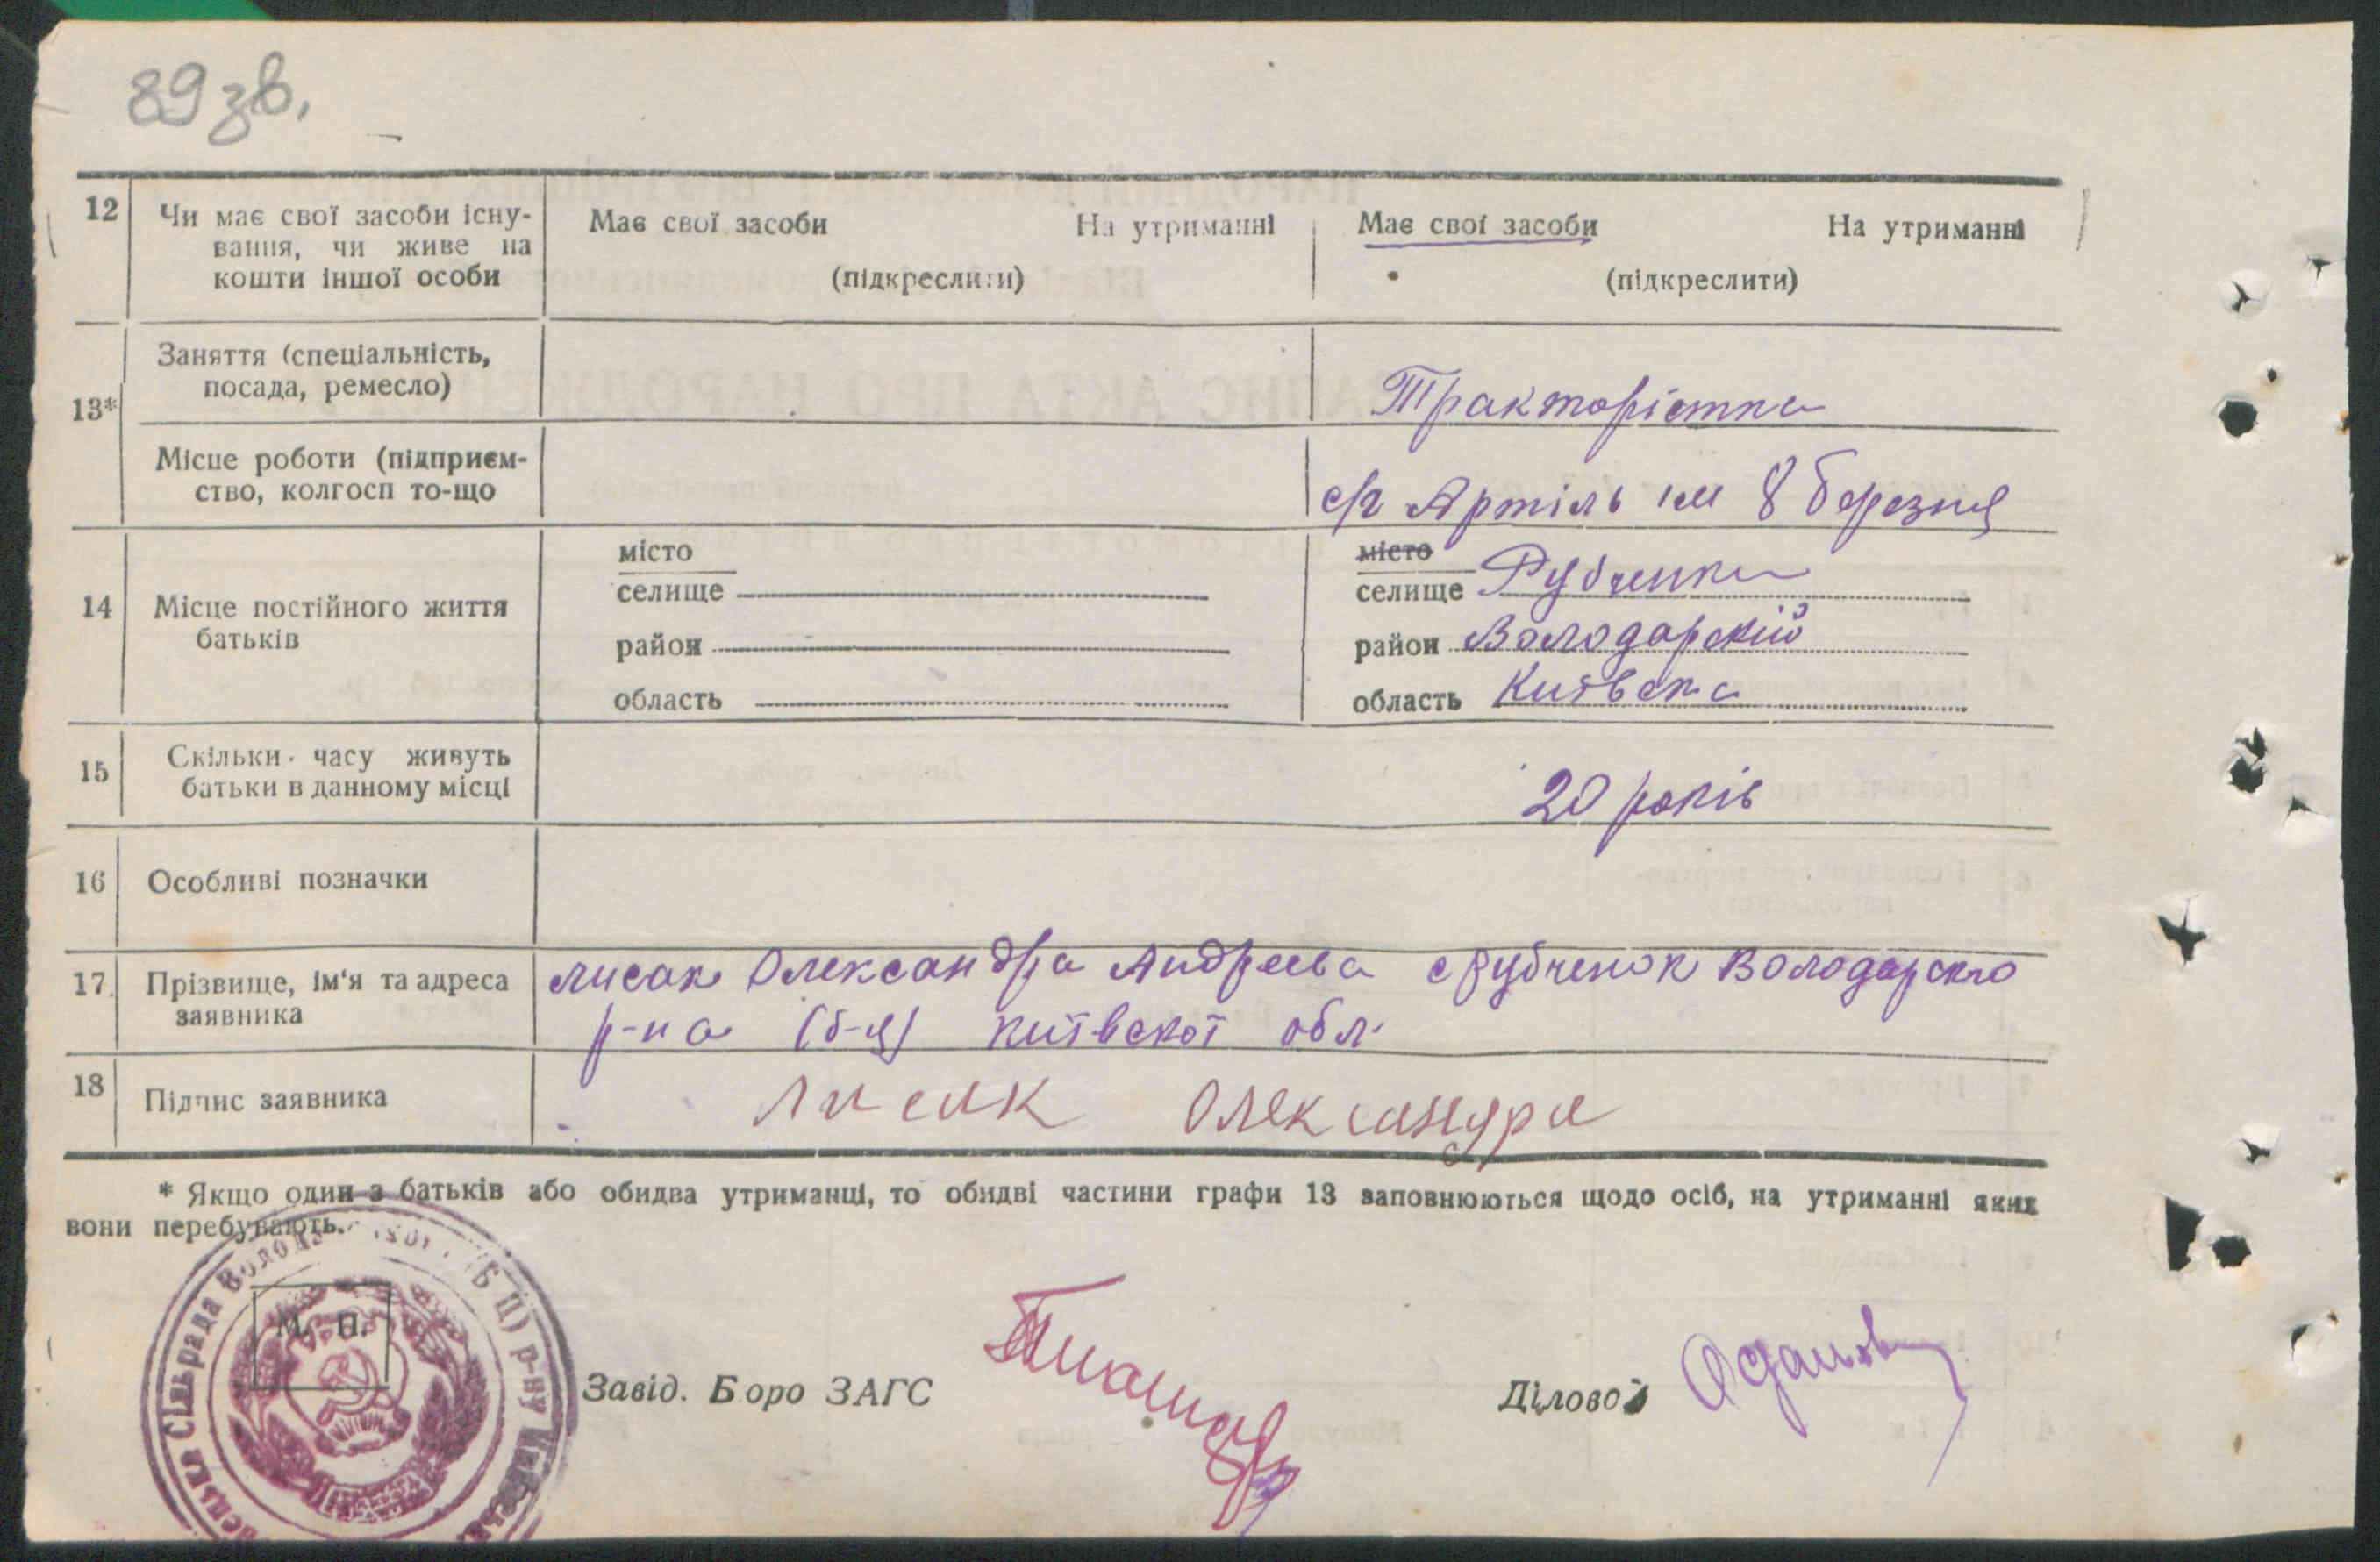 89 зв.
12 Чи має свої засоби існу- Має свої засоби На утриманні Має свої засоби На утриманні
вання, чи живе на
кошти іншої особи (підкреслити) (підкреслити)
13* Заняття (спеціальність,
посада, ремесло) Тракторістка
Місце роботи (підприєм- с/г Артіль ім 8 березня
ство, колгосп то-що
14 Місце постійного життя
батьків
місто місто
селище селище Рубченки
район район Володарский
область область Київска
15 Скільки часу живуть
батьки в данному місці 20 років
16 Особливі позначки
17 Прізвище, ім'я та адреса Лисак Олександра Андреева с Рубченок Володарского
заявника р-на (б-ц) Київскої обл.
18 Підпис заявника Лисак Олександра
* Якщо один з батьків або обидва утриманці, то обидві частини графи 13 заповнюються щодо осіб, на утриманні яких
вони перебувають.
М. П.
Сільрада (Б Ц) р-ну
Завід. Боро ЗАГС Діловод